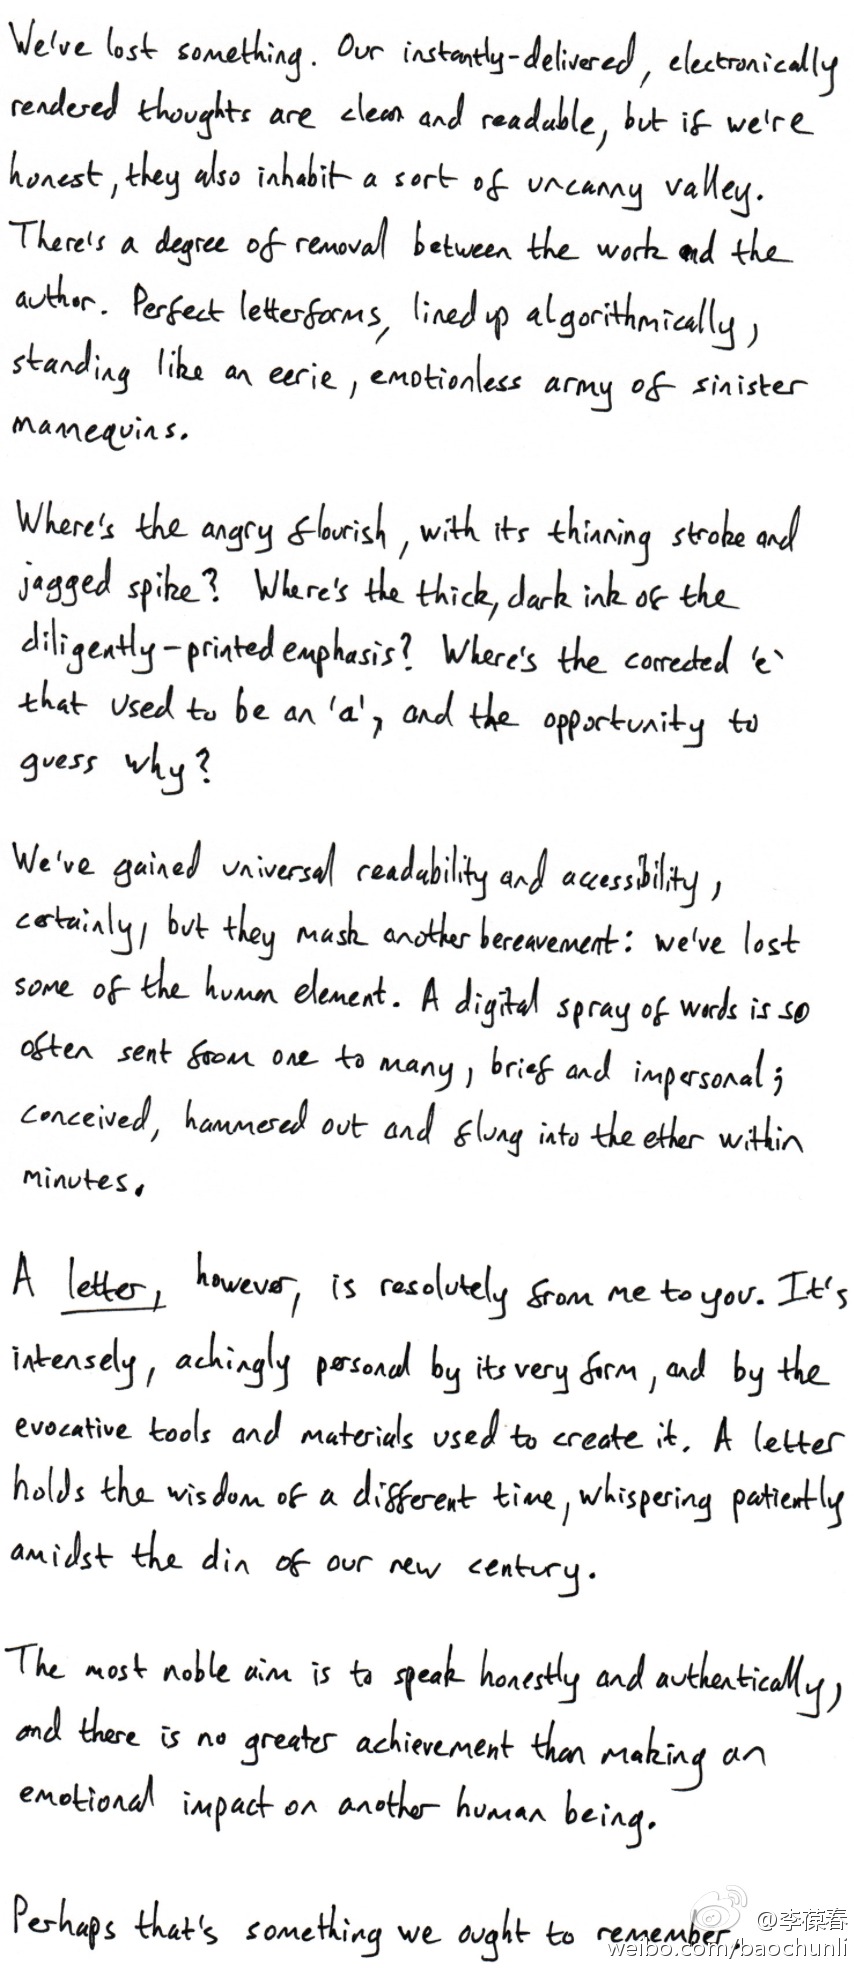 We've lost something. Our instantly-delivered, electronically
rendered thoughts are clean and readable, but if we're
honest, they also inhabit a sort of uncanny valley.
There's a degree of removal between the work and the
author. Perfect letterforms, lined up algorithmically,
standing like an eerie, emotionless army of sinister
mannequins.
Where's the angry flourish, with its thinning stroke and
jagged spike? Where's the thick, dark ink of the
diligently-printed emphasis? Where's the corrected 'e'
that used to be an 'a', and the opportunity to
guess why?
We've gained universal readability and accessibility,
certainly, but they mask another bereavement: we've lost
some of the human element. A digital spray of words is so
often sent from one to many, brief and impersonal;
conceived, hammered out and flung into the ether within
minutes.
A letter, however, is resolutely from me to you. It's
intensely, achingly personal by its very form, and by the
evocative tools and materials used to create it. A letter
holds the wisdom of a different time, whispering patiently
amidst the din of our new century.
The most noble aim is to speak honestly and authentically,
and there is no greater achievement than making an
emotional impact on another human being.
Perhaps that's something we ought to remember.
@李葆春
weibo.com/baochunli